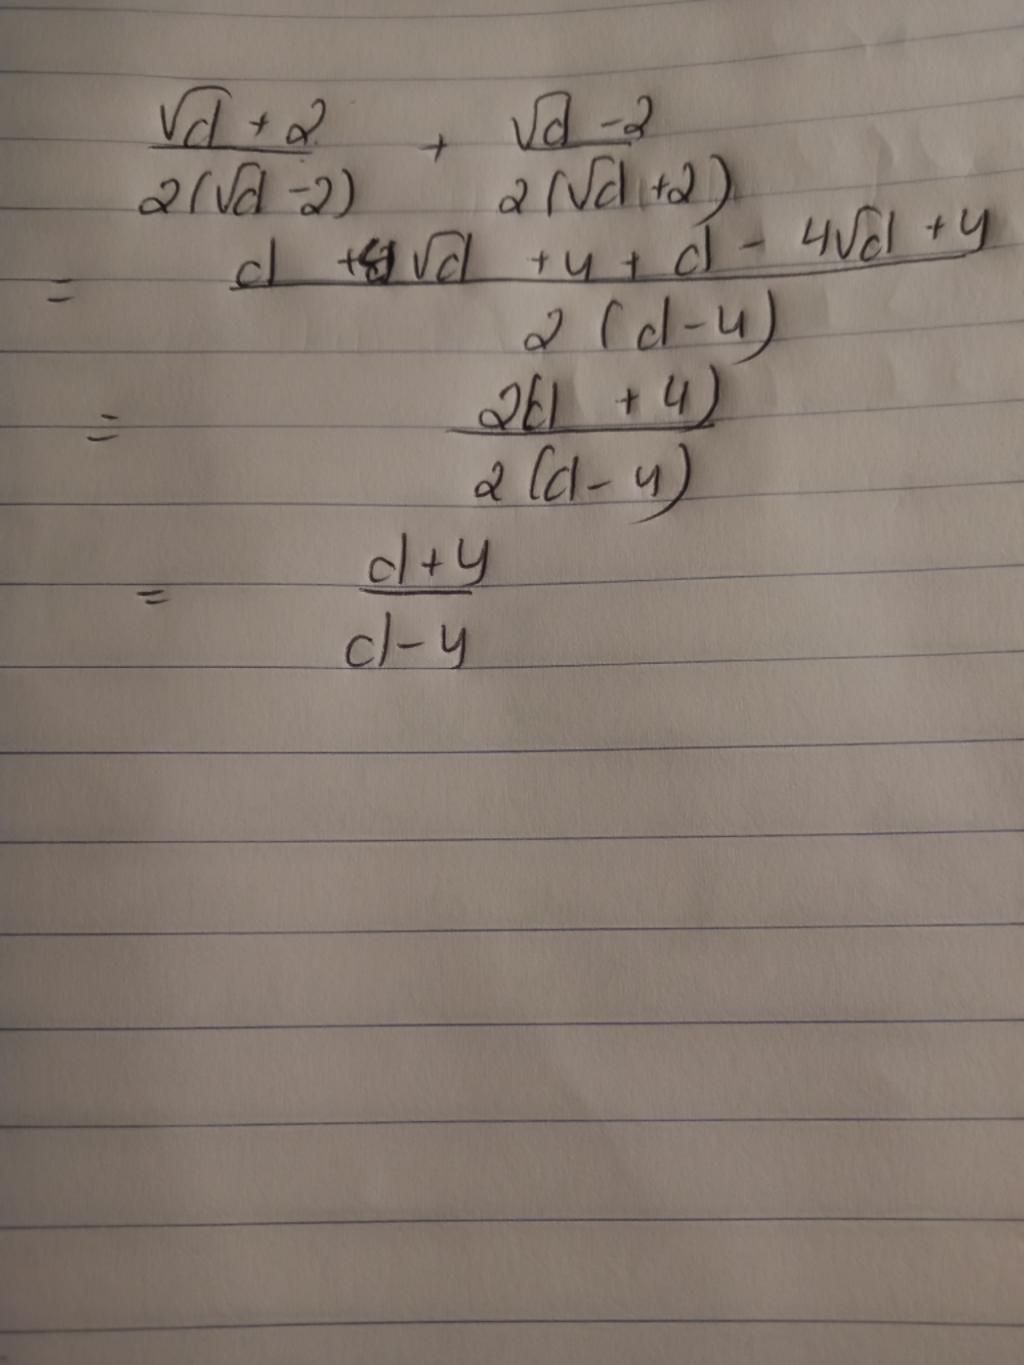 (√d + 2)/(2(√d - 2)) + (√d - 2)/(2(√d + 2))
= (d + 4√d + 4 + d - 4√d + 4)/(2(d - 4))
= (2(d + 4))/(2(d - 4))
= (d + 4)/(d - 4)